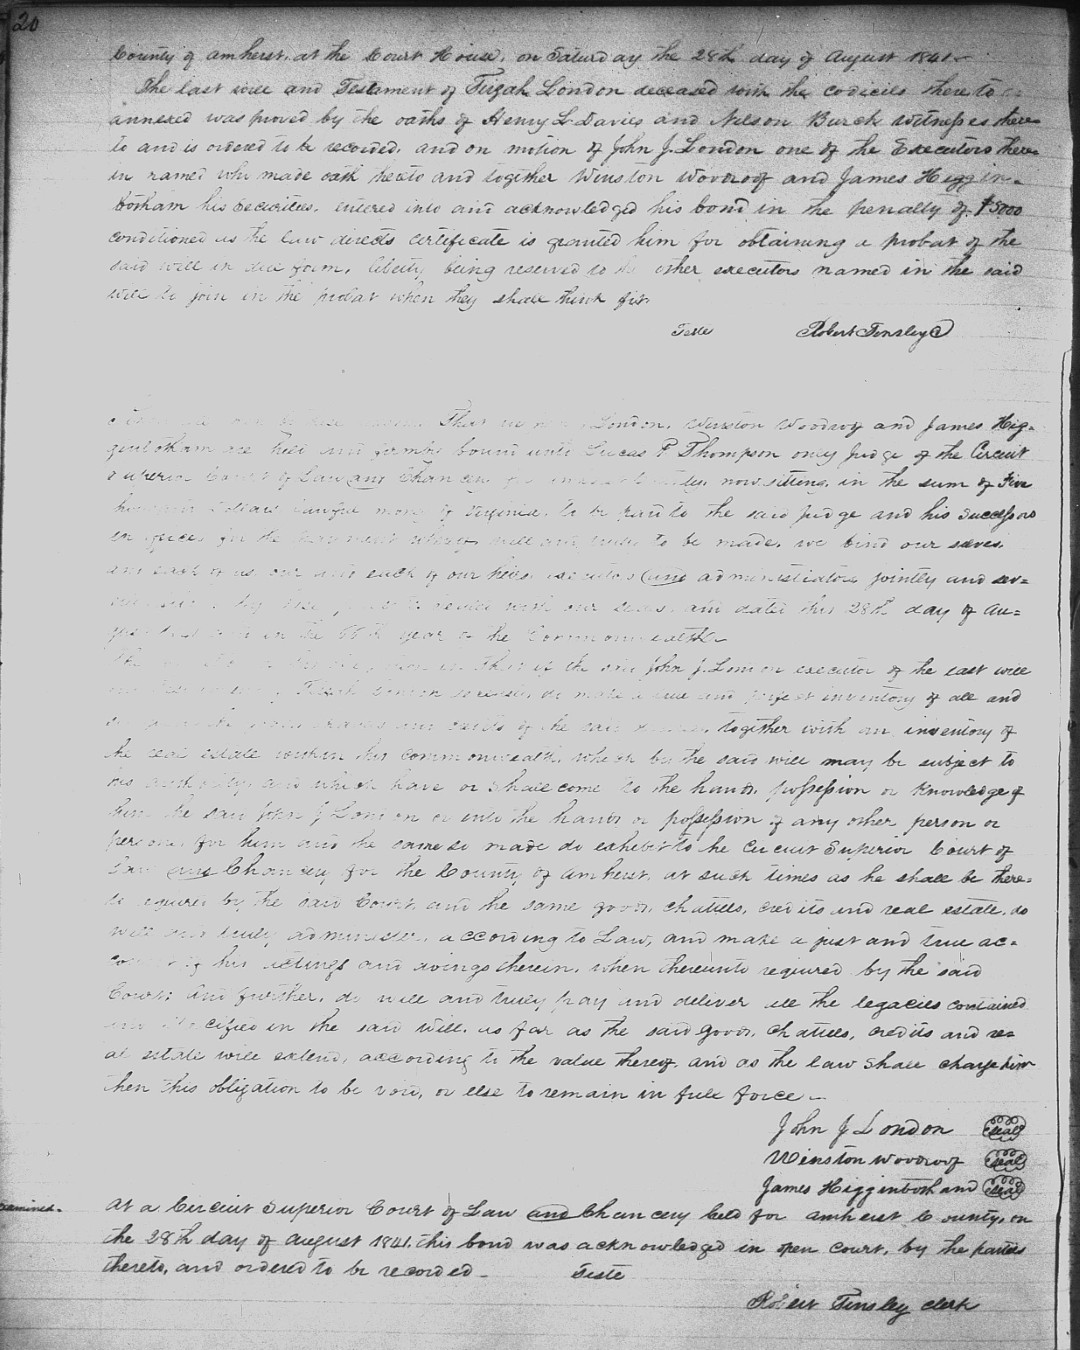 20
County of amherst, at the Court House, on Saturday the 28th day of August 1841.
The last will and Testament of Tirzah London deceased with the codicils there to
annexed was proved by the oaths of Henry L Davies and Nelson Burck witnesses there=
to and is ordered to be recorded. and on motion of John J. London one of the Executors there=
in named who made oath thereto and together Winston Woodroof and James Higgin=
botham his Securities, entered into and acknowledged his bond in the penalty of $5000
conditioned as the law directs certificate is granted him for obtaining a probat of the
said will in due form, liberty being reserved to the other executors named in the said
will to join in the probat when they shall think fit.
Teste Robert Tinsley C
That we London, Winston Woodroof and James Hig=
ginbotham are held and firmly bound unto Lucas P Thompson only Judge of the Circuit
Superior Court of Law and Chancery now sitting, in the sum of Five
thousand dollars lawful money of Virginia, to be paid to the said Judge and his Successors
in office, for the payment whereof well and truly to be made, we bind our selves,
and each of us, our and each of our heirs, executors and administrators jointly and sev=
with our seals, and dated this 28th day of Au=
in the 66th year of the Commonwealth
is that if the said John J. London executor of the last will
of Tirzah London deceased, do make a true and perfect inventory of all and
and credits of the said together with an inventory of
the real estate within this commonwealth, which by the said will may be subject to
his authority, and which have or shall come to the hands, possession or knowledge of
him the said John J London or into the hands or possession of any other person or
persons for him and the same so made do exhibit to the Circuit Superior Court of
Law and Chancery for the County of amherst, at such times as he shall be there=
to required by the said Court, and the same goods, chattels, credits and real estate, do
well and truly administer, according to Law, and make a just and true ac=
count of his actings and doings therein, when thereunto required by the said
Court: And further, do well and truly pay and deliver all the legacies contained
and specified in the said will, as far as the said goods, chattels, credits and re=
al estate will extend, according to the value thereof, and as the law shall charge him
then this obligation to be void, or else to remain in full force.
John J London seal
Winston Woodroof seal
James Higginbotham seal
Examined. At a Circuit Superior Court of Law and Chancery held for amherst County, on
the 28th day of August 1841, this bond was acknowledged in open court, by the parties
thereto, and ordered to be recorded.
Teste
Robert Tinsley clerk